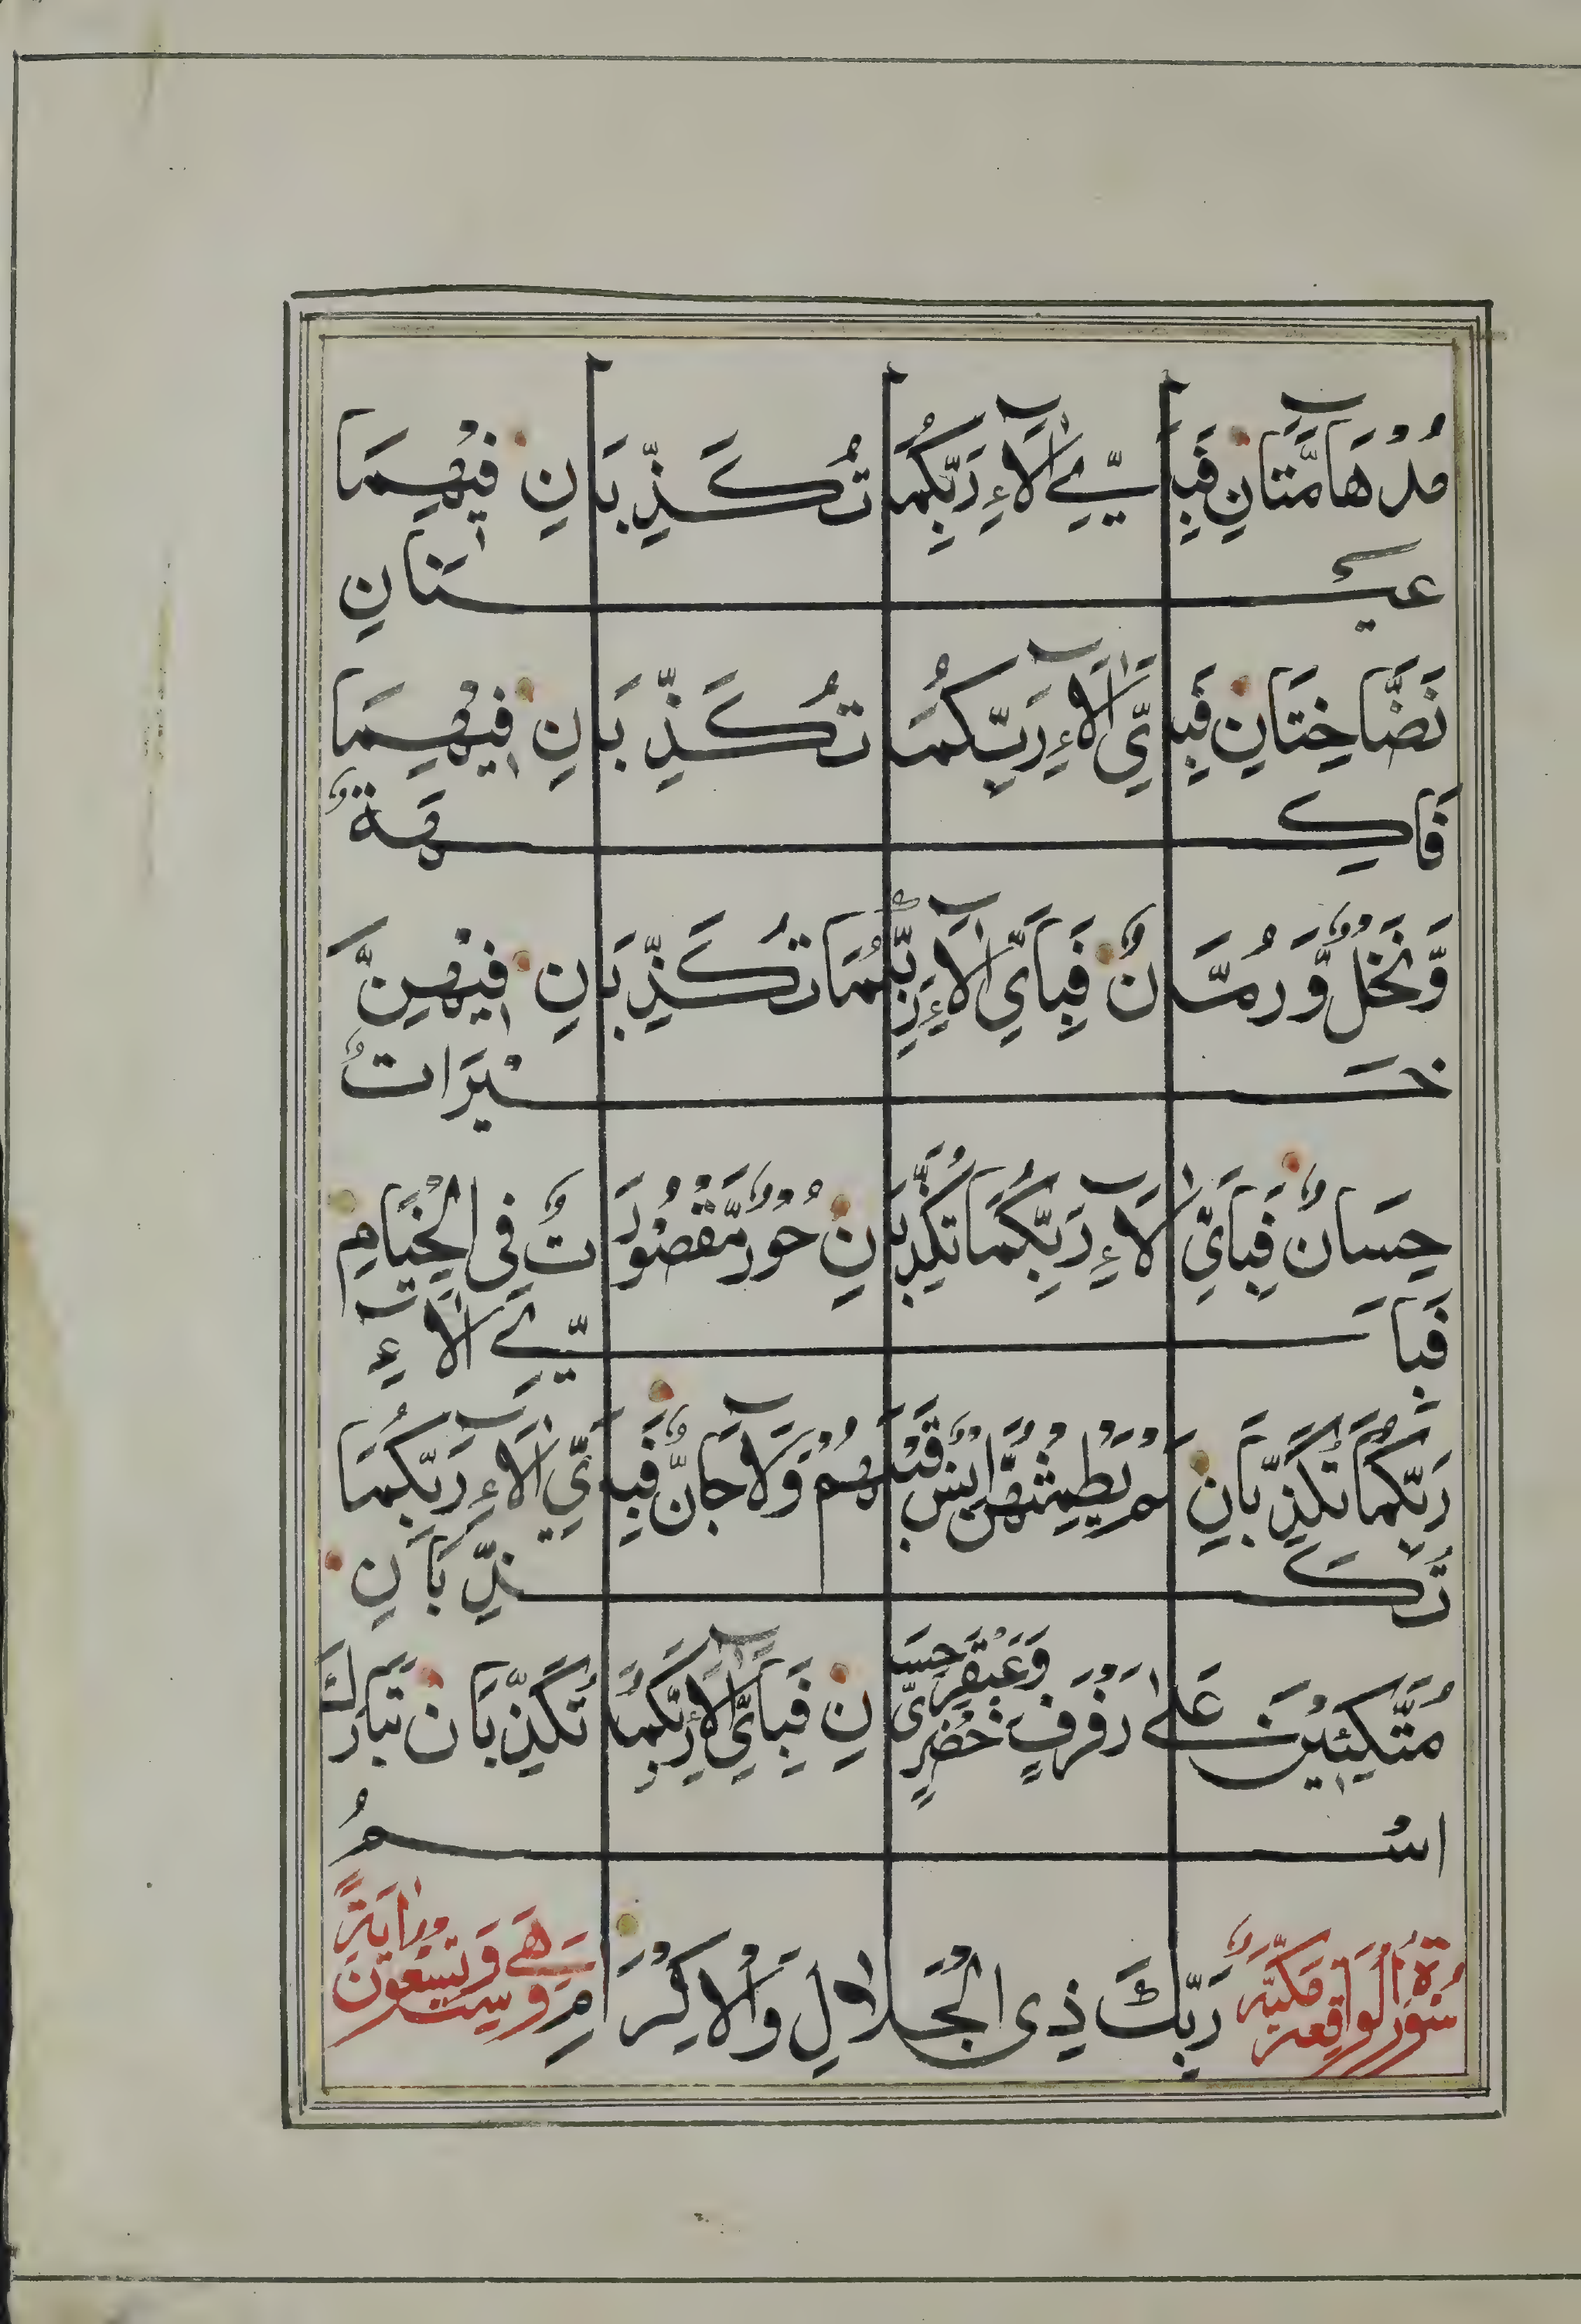 مُدْهَامَّتَانِ فَبِاَيِّ اٰلَآءِ رَبِّكُمَا تُكَذِّبَانِ فِيْهِمَا
عَيْنَانِ
نَضَّاخَتَانِ فَبِاَيِّ اٰلَآءِ رَبِّكُمَا تُكَذِّبَانِ فِيْهِمَا
فَاكِهَةٌ
وَّنَخْلٌ وَّرُمَّانٌ فَبِاَيِّ اٰلَآءِ رَبِّكُمَا تُكَذِّبَانِ فِيْهِنَّ
خَيْرَاتٌ
حِسَانٌ فَبِاَيِّ اٰلَآءِ رَبِّكُمَا تُكَذِّبَانِ حُوْرٌ مَّقْصُوْرَاتٌ فِى الْخِيَامِ
فَبِاَيِّ اٰلَآءِ
رَبِّكُمَا تُكَذِّبَانِ لَمْ يَطْمِثْهُنَّ اِنْسٌ قَبْلَهُمْ وَلَا جَآنٌّ فَبِاَيِّ اٰلَآءِ رَبِّكُمَا
تُكَذِّبَانِ
مُتَّكِئِيْنَ عَلٰى رَفْرَفٍ خُضْرٍ وَّعَبْقَرِيٍّ حِسَانٍ فَبِاَيِّ اٰلَآءِ رَبِّكُمَا تُكَذِّبَانِ تَبَارَكَ
اسْمُ
رَبِّكَ ذِى الْجَلَالِ وَالْاِكْرَامِ
سُوْرَةُ الْوَاقِعَةِ مَكِّيَّةٌ وَهِيَ سِتٌّ وَتِسْعُوْنَ اٰيَةً